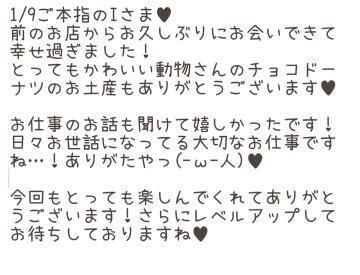 1/9ご本指のIさま♥
前のお店からお久しぶりにお会いできて
幸せ過ぎました！
とってもかわいい動物さんのチョコドー
ナツのお土産もありがとうございます♥

お仕事のお話も聞けて嬉しかったです！
日々お世話になってる大切なお仕事です
ね…！ありがたやっ(-ω-人)♥

今回もとっても楽しんでくれてありがと
うございます！さらにレベルアップして
お待ちしておりますね♥